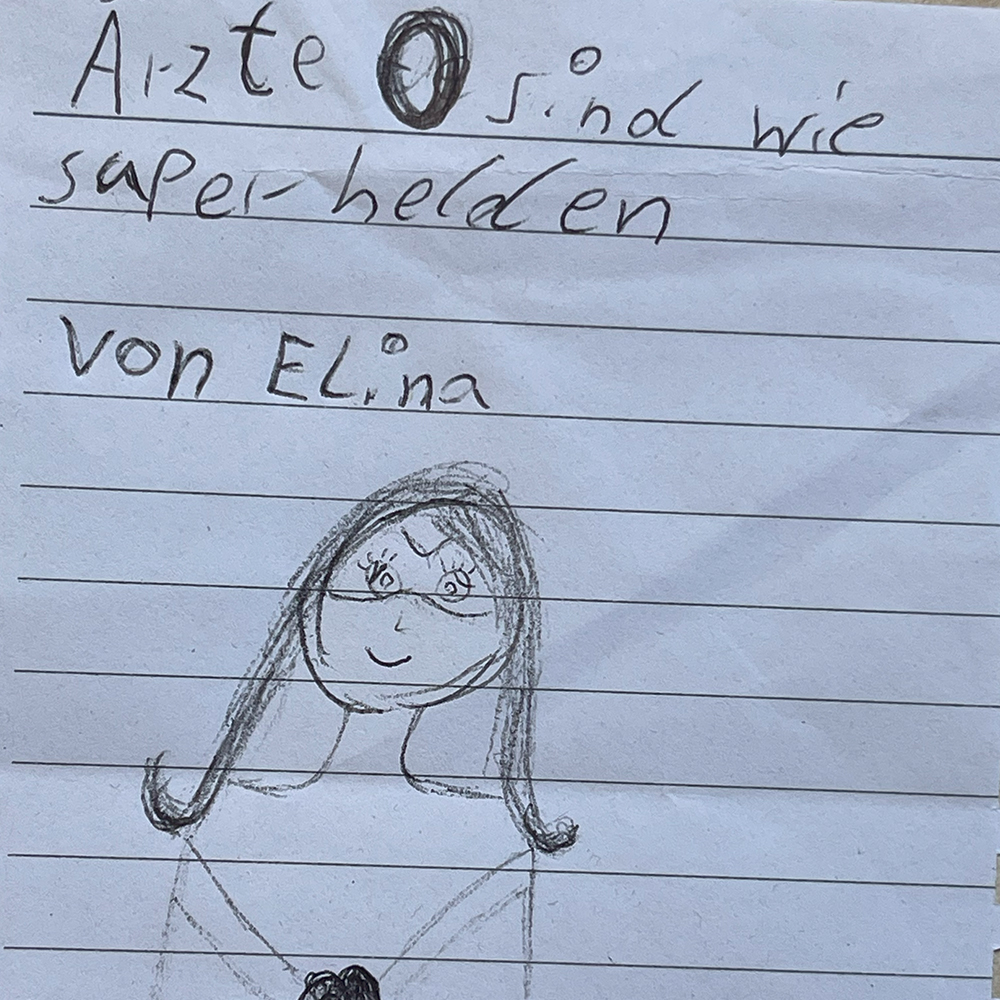 Ärzte sind wie
superhelden
Von ELina